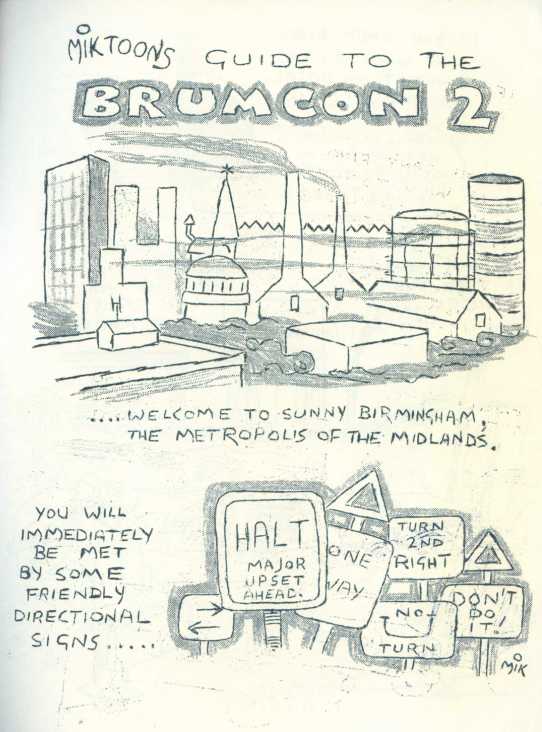 MIKTOONS GUIDE TO THE
BRUMCON 2
H
....WELCOME TO SUNNY BIRMINGHAM,
THE METROPOLIS OF THE MIDLANDS.
YOU WILL
IMMEDIATELY
BE MET
BY SOME
FRIENDLY
DIRECTIONAL
SIGNS.....
HALT
MAJOR
UPSET
AHEAD.
ONE
WAY
TURN
2ND
RIGHT
NO
TURN
DON'T
DO
IT!
MiK